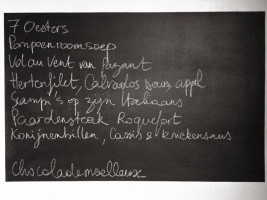 7 Oesters
Pompoenroomsoep
Vol au Vent van Fazant
Hertenfilet, Calvados saus, appl
Scampi's op zijn Italiaans
Paardensteak Roquefort
Konijnenbillen, Cassis & kriekensaus
Chocolademoelleux